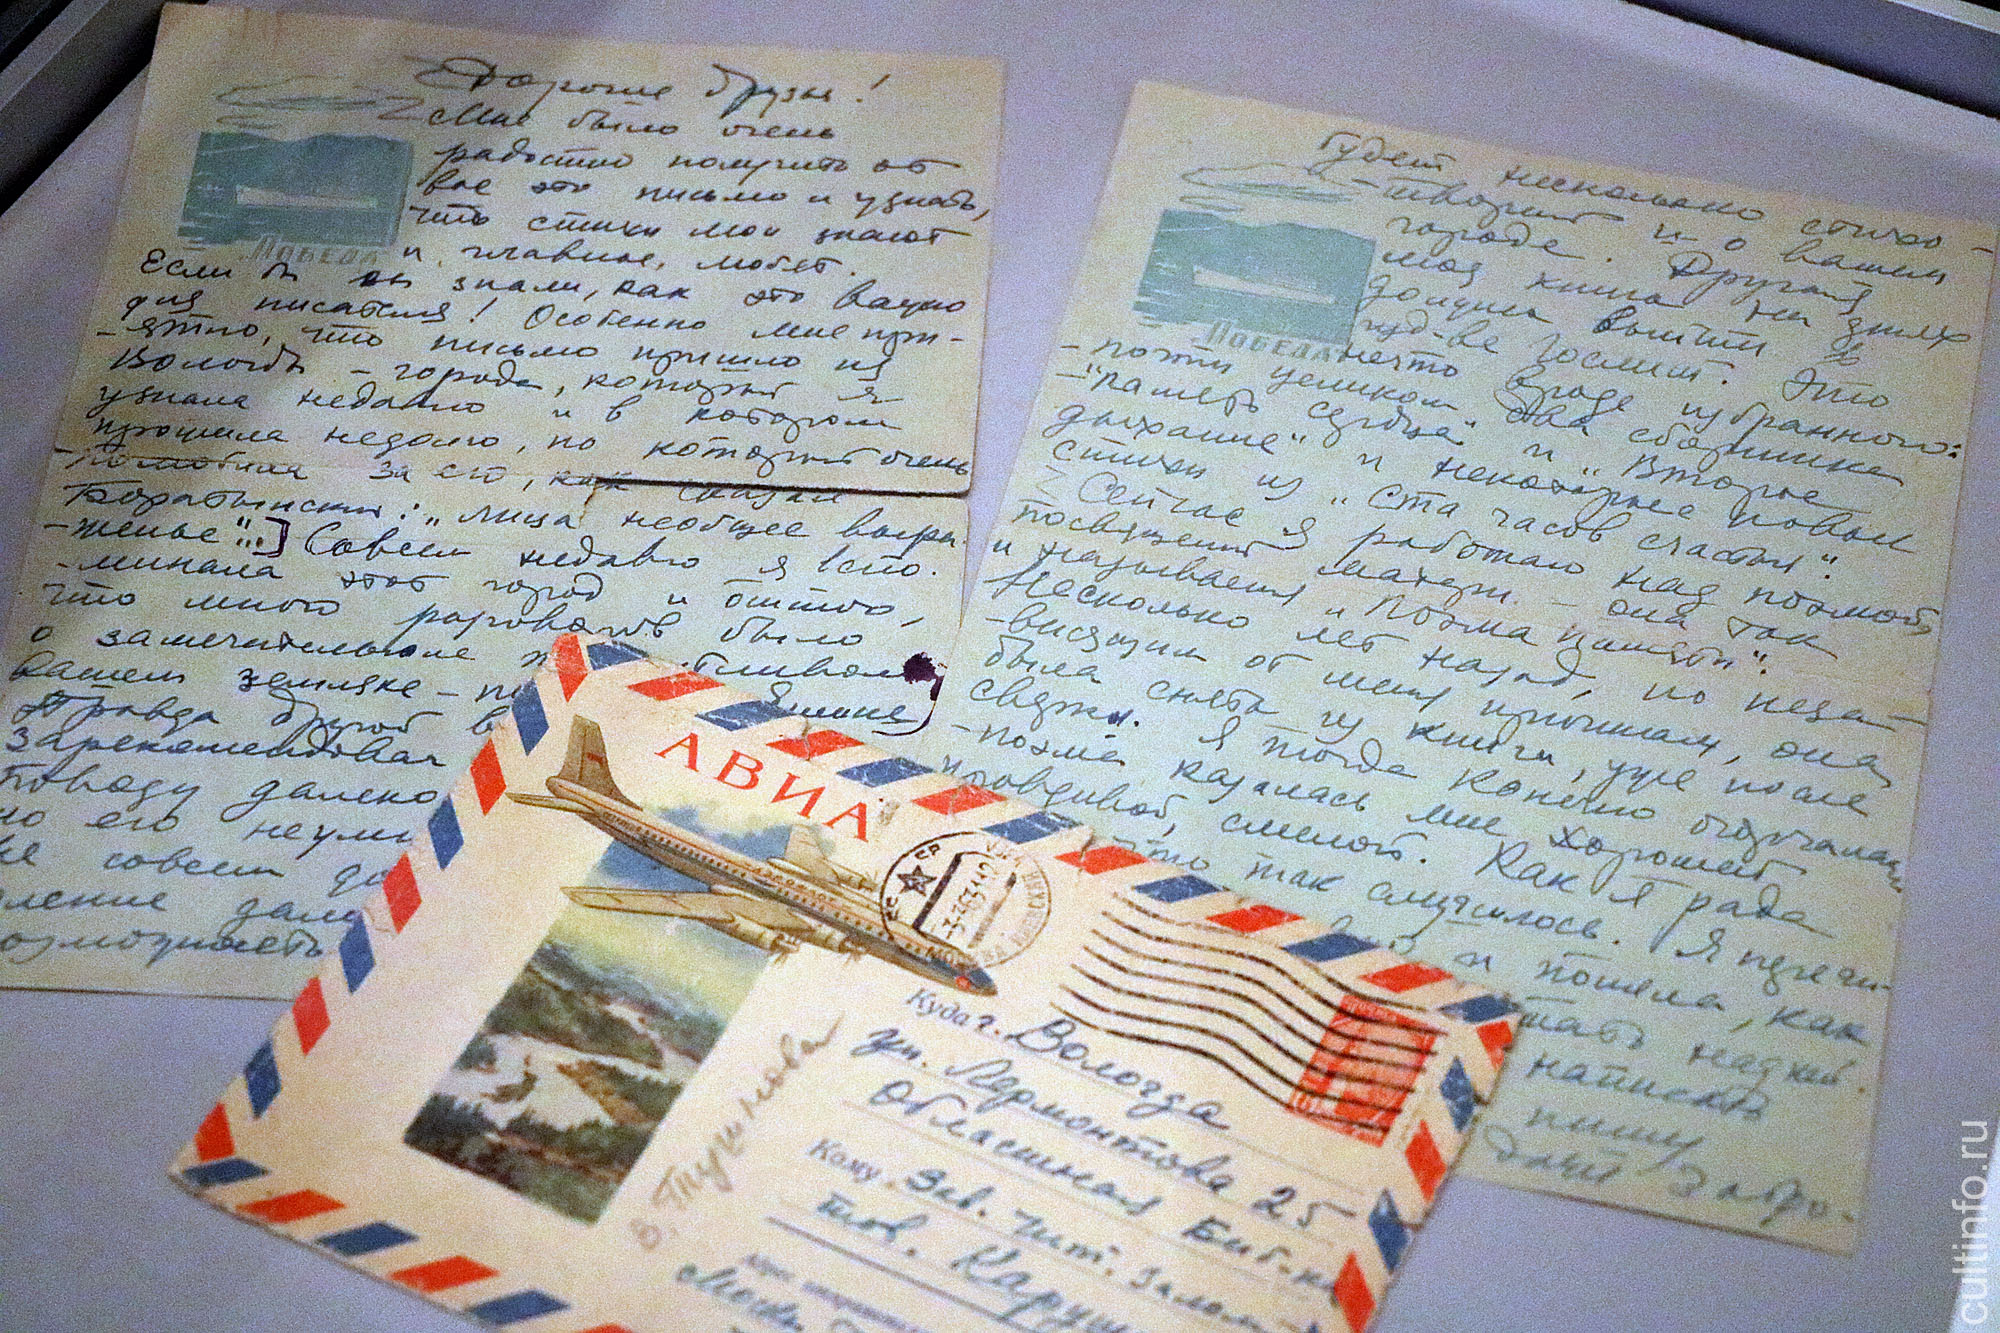 Дорогие друзья!
Мне было очень
радостно получить от
вас это письмо и узнать,
что стихи мои знают
и, главное, любят.
ПОБЕДА
Если бы вы знали, как это важно
для писателя! Особенно мне при-
-ятно, что письмо пришло из
Вологды – города, который я
узнала недавно и в котором
прожила недолго, но который очень
полюбила за его, как сказал
Боратынский: „лица необщее выра-
-женье"...] Совсем недавно я вспо-
-минала этот город и оттого,
что много разговоров было
о замечительном
вашем земляке –
Яшине
Правда другой
зарекомендовал
поводу далеко
но его неум
не совсем
Будет несколько стихо-
-творений и о вашем
городе. Другая
моя книга на днях
должна выйти в
изд-ве Гослит. Это
ПОБЕДА
нечто вроде избранного:
-почти целиком два сборника
-"Память сердца" и "Второе
дыхание" и некоторые новые
стихи из "Ста часов счастья".
Сейчас я работаю над поэмой,
посвященной матери – она так
и называется "Поэма памяти".
Несколько лет назад, по неза-
-висящим от меня причинам, она
была снята из книги, уже после
сверки. Я тогда конечно огорчалась
-поэма казалась мне хорошей
правдивой, смелой. Как я рада
что так случилось. Я перечи-
и поняла, как
надией.
написала
пишу
АВИА
АЭРОФЛОТ
СССР
МОСКВА
Куда г. Вологда
ул. Лермонтова 25
Областная Биб-ка
Кому Зав. Чит. Залом
тов. Каруш
Адрес
Моск
В. Тушнова
cultinfo.ru